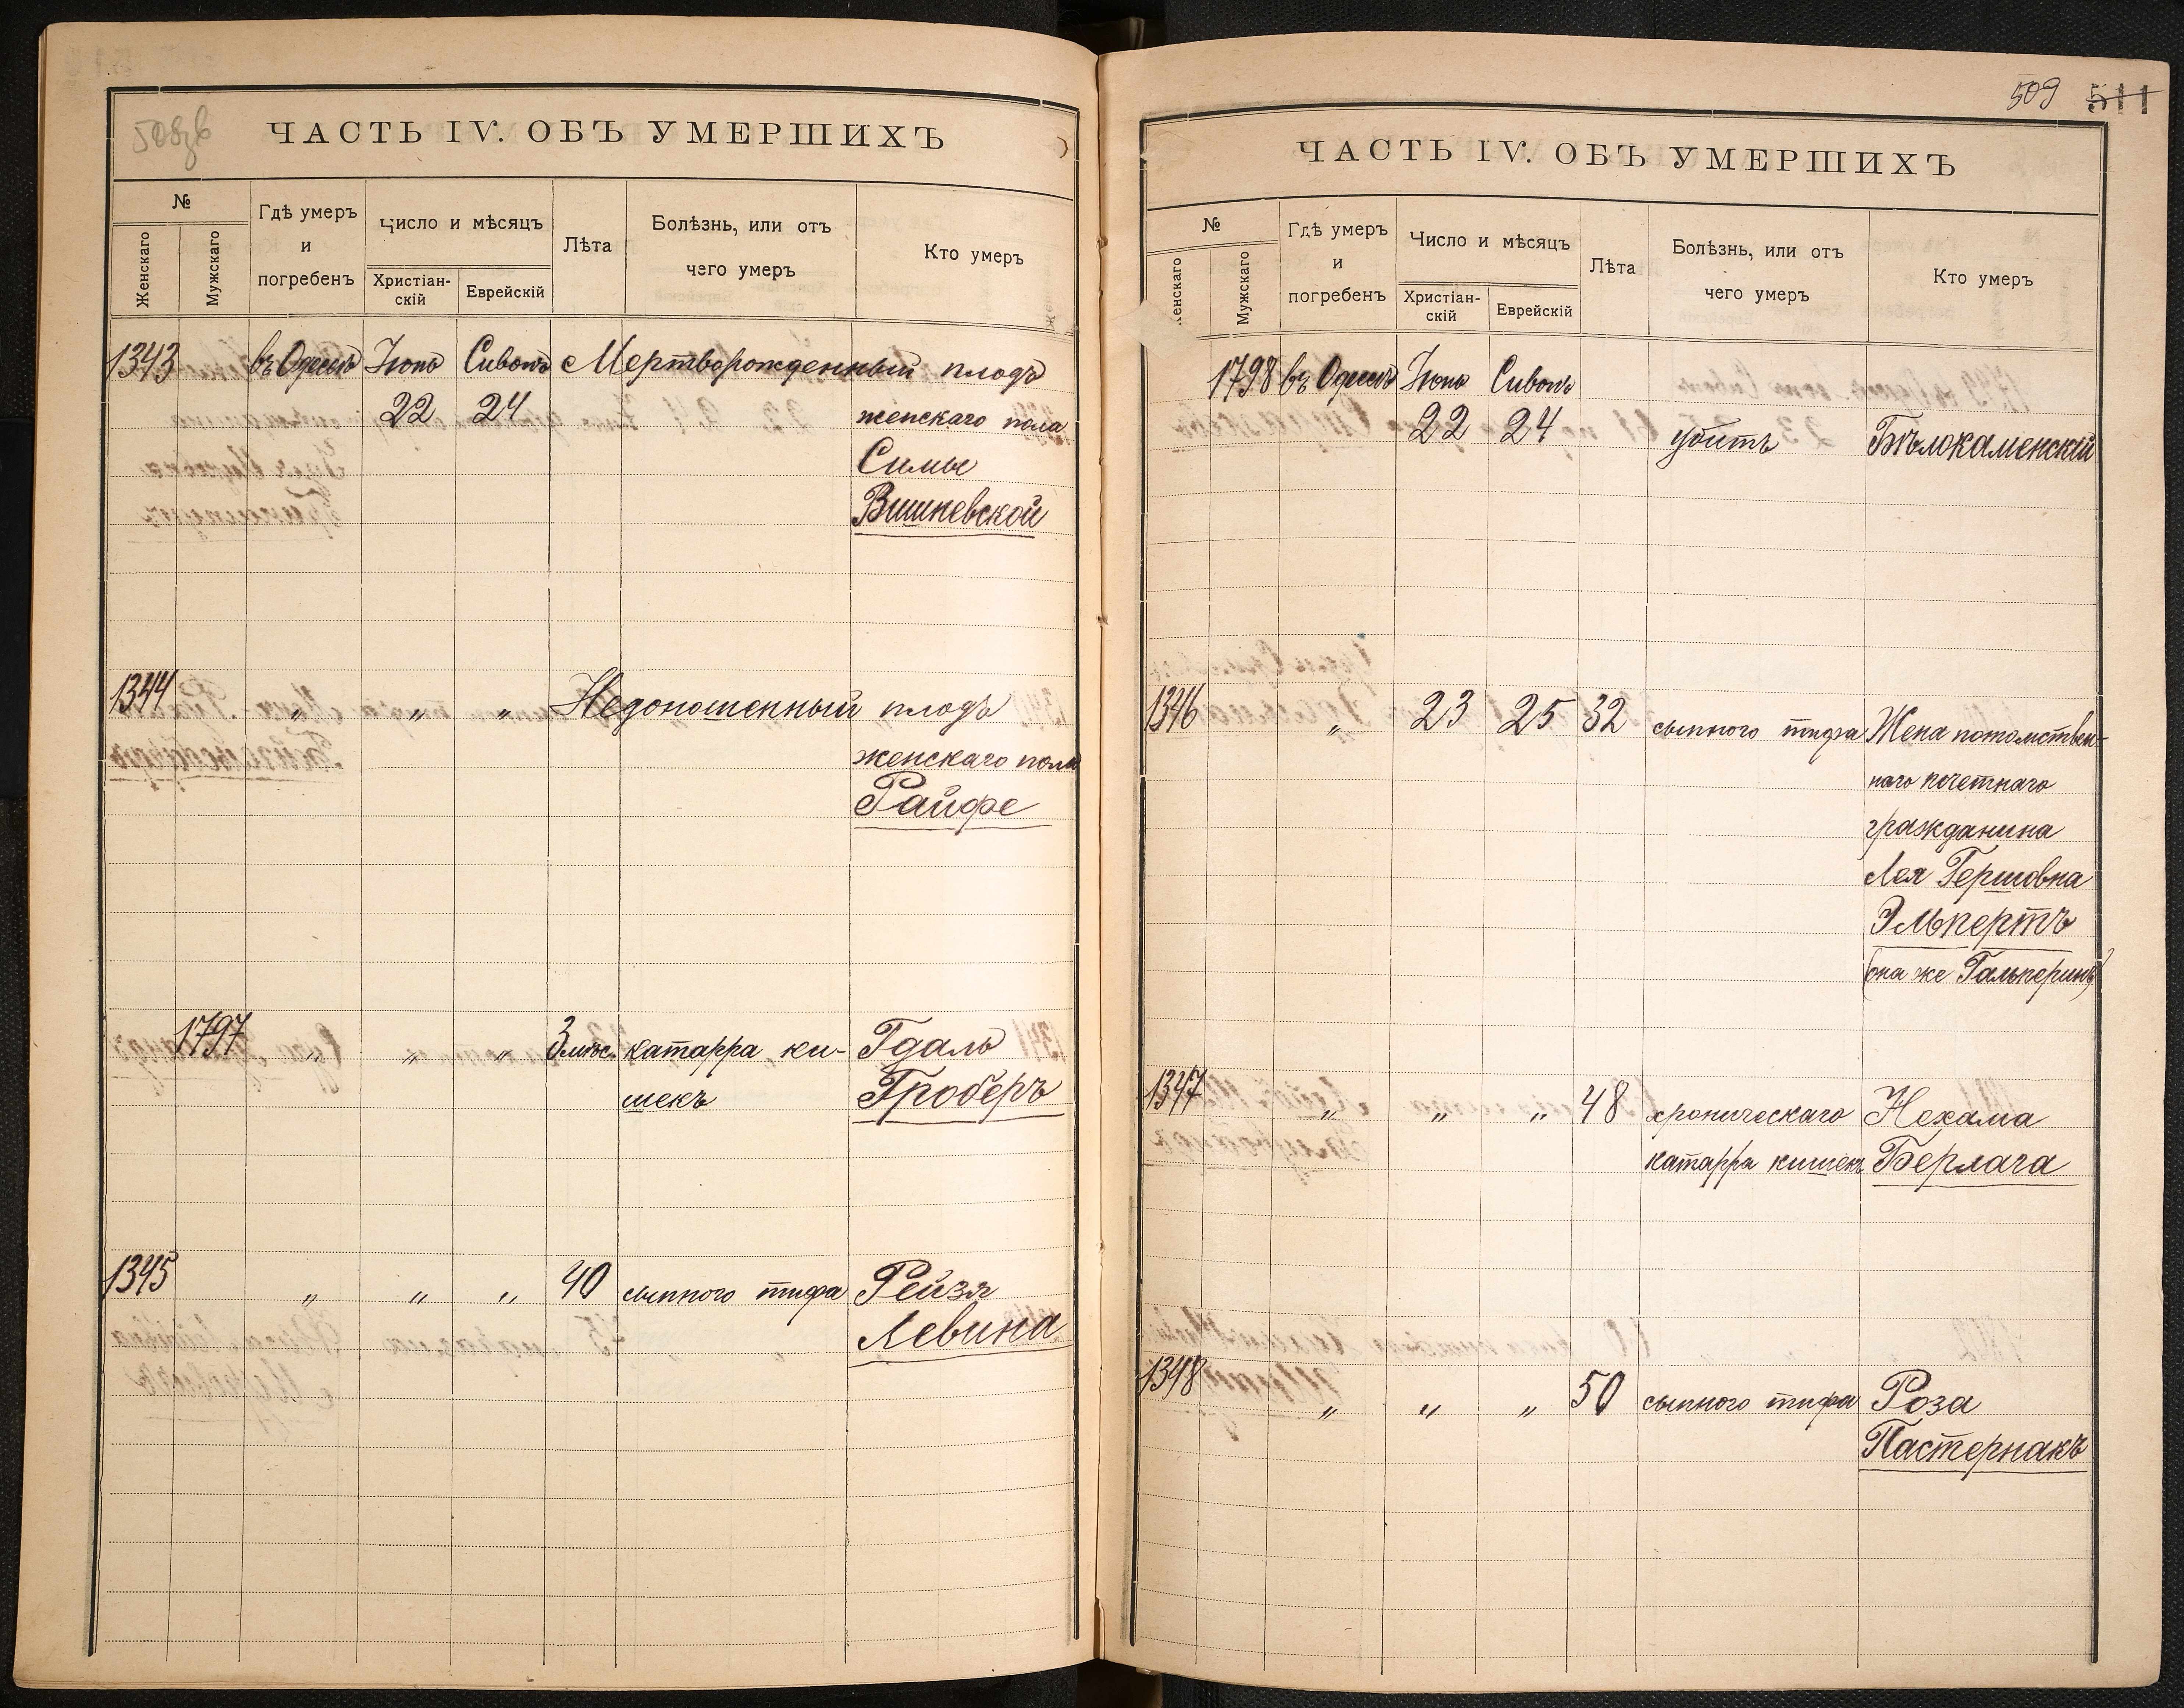 508об
ЧАСТЬ IV. ОБЪ УМЕРШИХЪ
№
Женскаго
Мужскаго
Гдѣ умеръ
и
погребенъ
Число и мѣсяцъ
Христіан-
скій
Еврейскій
Лѣта
Болѣзнь, или отъ
чего умеръ
Кто умеръ
1343 въ Одессѣ Іюнь Сивонъ Мертворожденный плодъ
22 24 женскаго пола
Симы
Вишневской
1344 „ „ „ Недоношенный плодъ
женскаго пола
Райфе
1797 „ „ „ 3 мѣс. катарра ки- Гдаль
шекъ Гроберъ
1345 „ „ „ 40 сыпного тифа Рейзя
Левина
509 511
ЧАСТЬ IV. ОБЪ УМЕРШИХЪ
№
енскаго
Мужскаго
Гдѣ умеръ
и
погребенъ
Число и мѣсяцъ
Христіан-
скій
Еврейскій
Лѣта
Болѣзнь, или отъ
чего умеръ
Кто умеръ
1798 въ Одессѣ Іюнь Сивонъ
22 24 убитъ Бѣлокаменскій
1346 „ 23 25 32 сыпного тифа Жена потомствен-
наго почетнаго
гражданина
Лея Гершовна
Эльпертъ
(она же Гальперинъ)
1347 „ „ „ 48 хроническаго Нехама
катарра кишекъ Берлага
1348 „ „ „ 50 сыпного тифа Роза
Пастернакъ